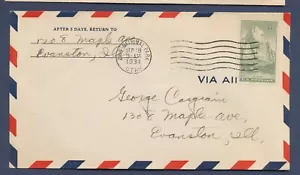 AFTER 5 DAYS, RETURN TO
1208 Maple Ave
Evanston, Ill
SEP 18
1934
UTAH
VIA AI
George Cargrain
1308 Maple Ave,
Evanston, Ill.